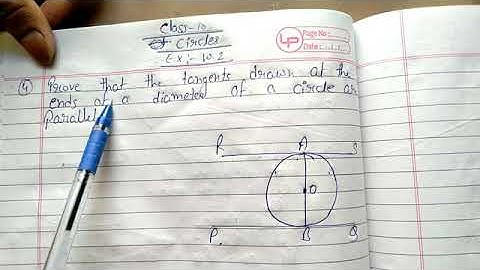 Class-10
Circles
Ex:- 10.2
Page No.:
Date:
(4) Prove that the tangents drawn at the
ends of a diameter of a circle ar
Parallel
R A S
O
P. B Q